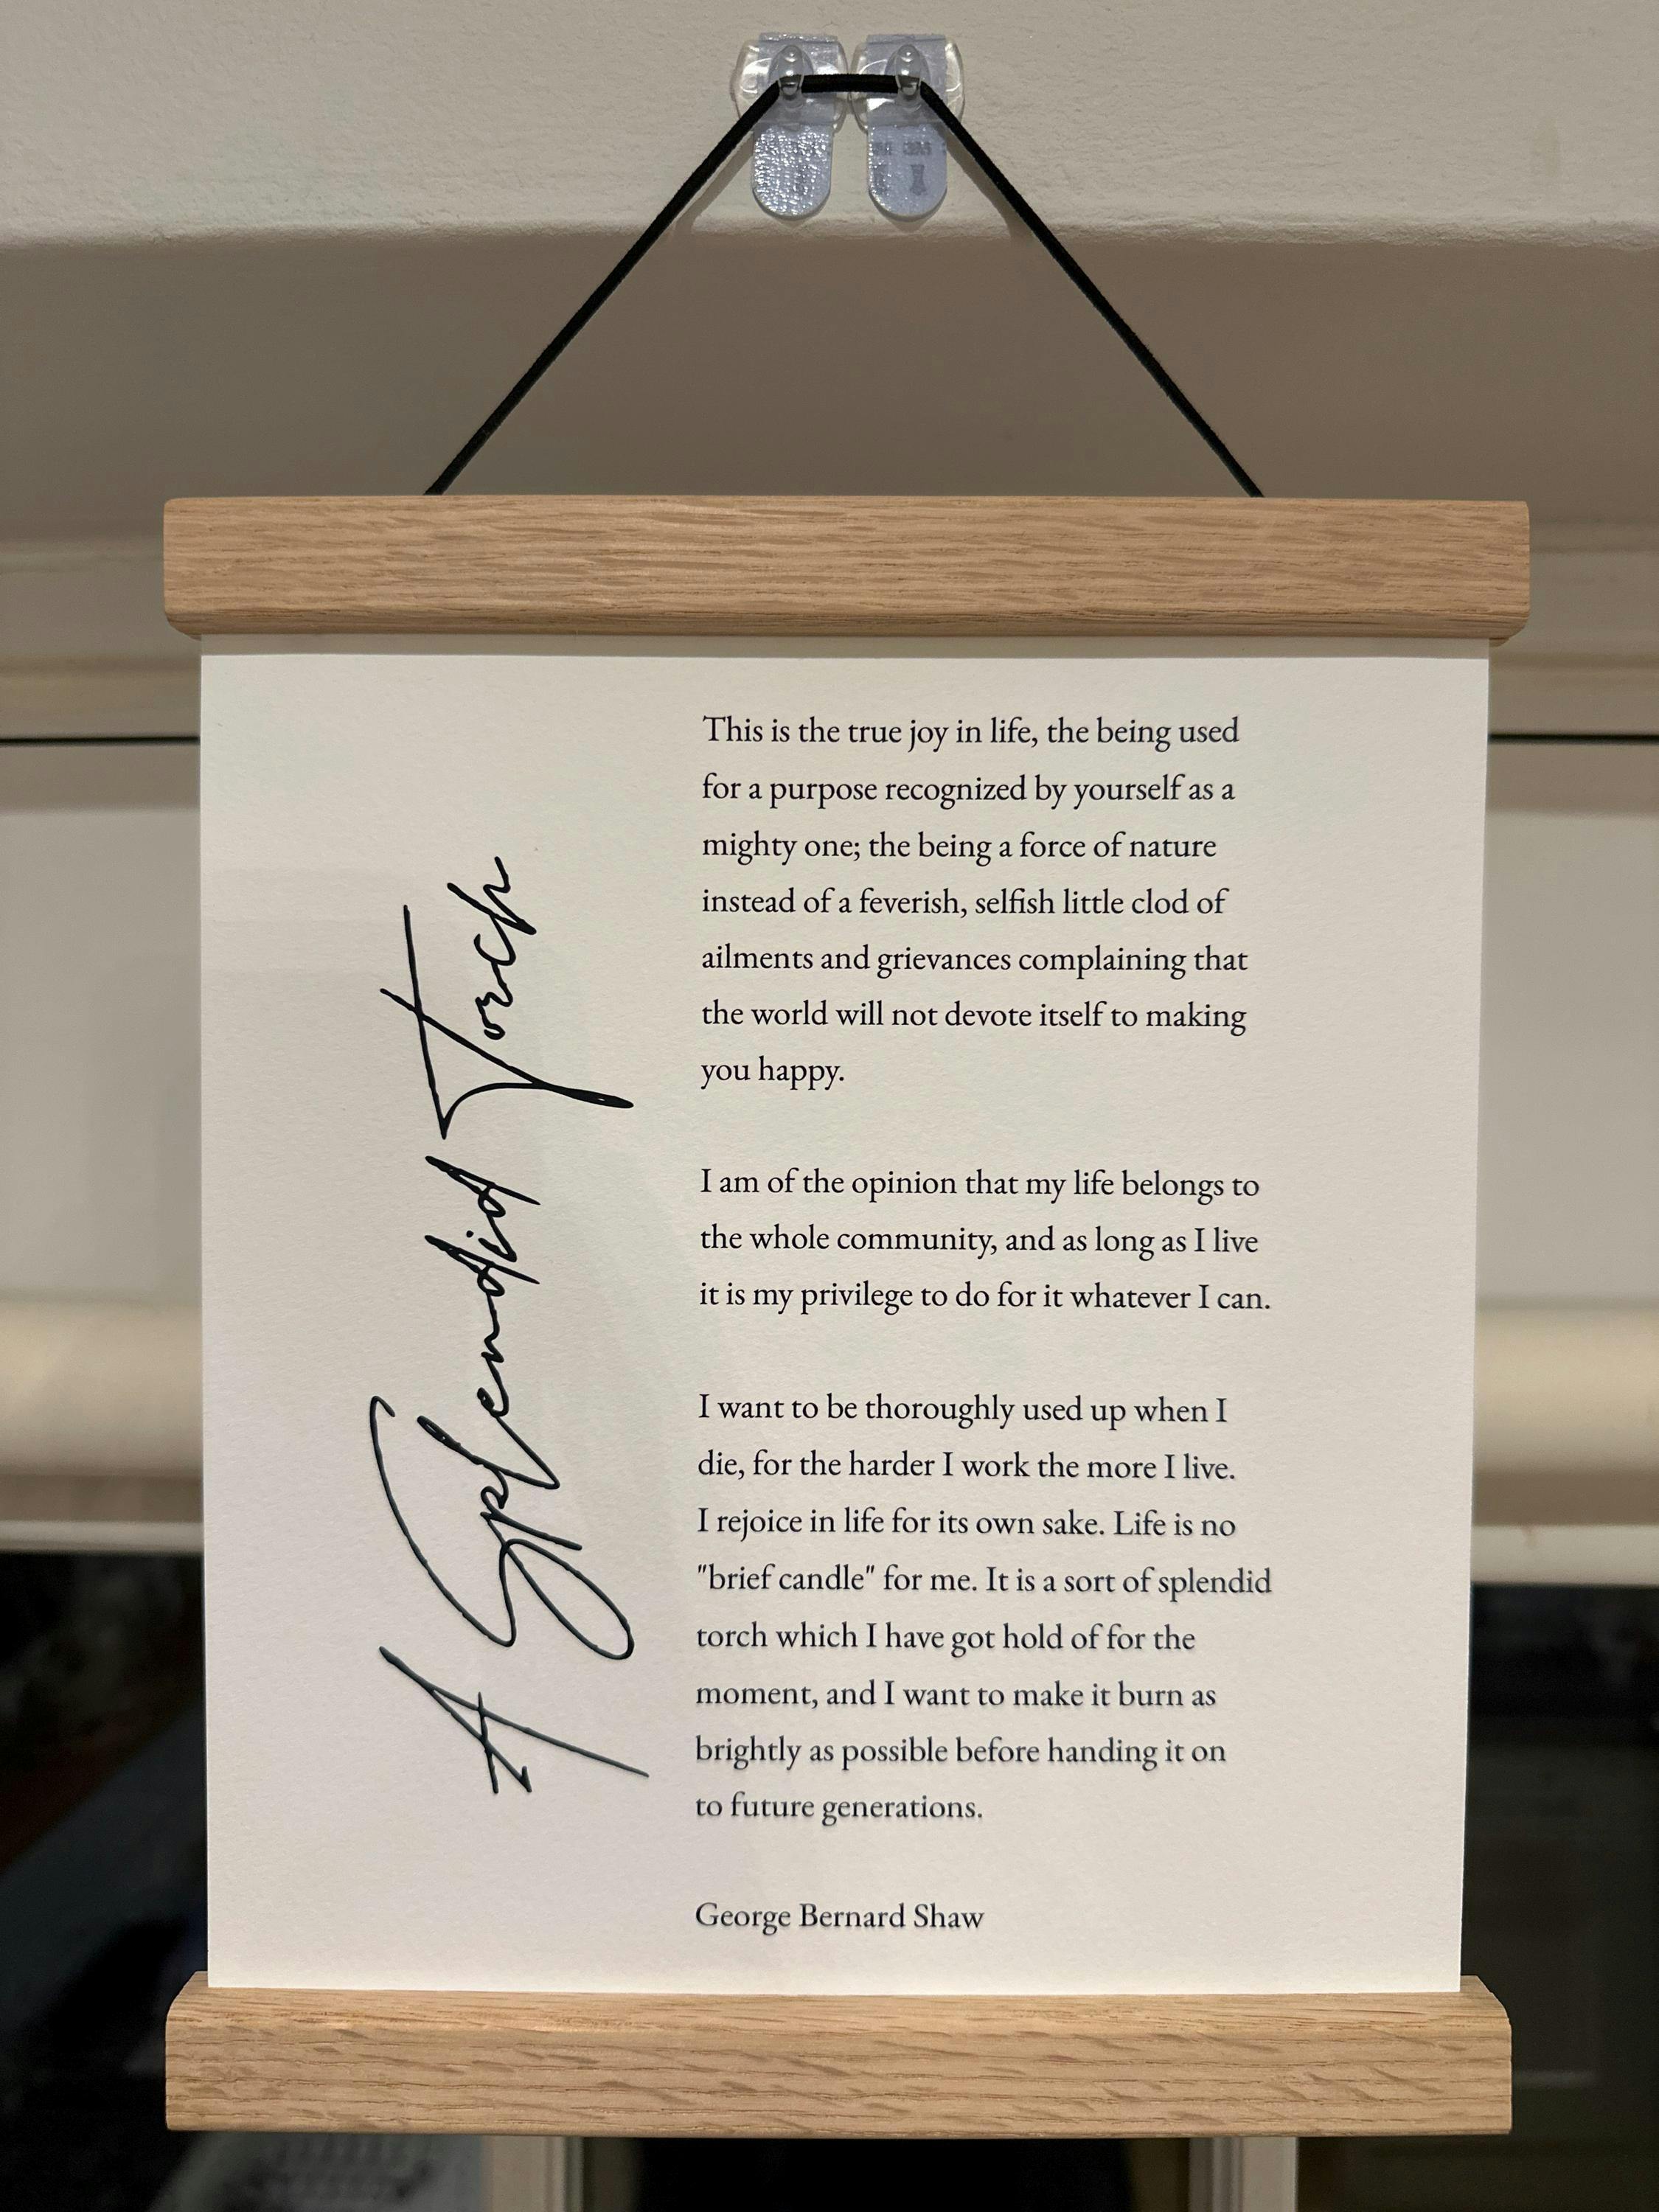 A Splendid Torch
This is the true joy in life, the being used
for a purpose recognized by yourself as a
mighty one; the being a force of nature
instead of a feverish, selfish little clod of
ailments and grievances complaining that
the world will not devote itself to making
you happy.
I am of the opinion that my life belongs to
the whole community, and as long as I live
it is my privilege to do for it whatever I can.
I want to be thoroughly used up when I
die, for the harder I work the more I live.
I rejoice in life for its own sake. Life is no
"brief candle" for me. It is a sort of splendid
torch which I have got hold of for the
moment, and I want to make it burn as
brightly as possible before handing it on
to future generations.
George Bernard Shaw